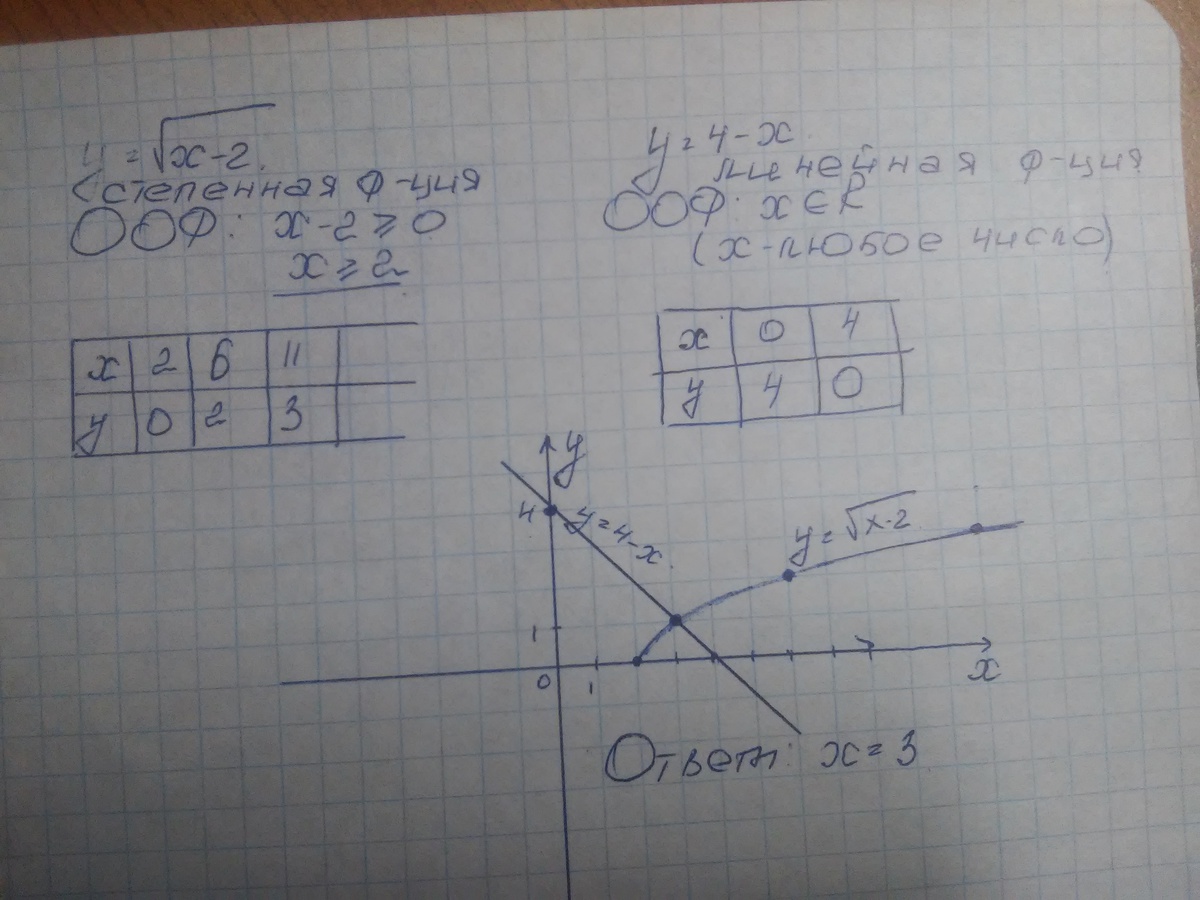 y = √x-2.
Степенная ф-ция
ООФ: x-2 ≥ 0
x ≥ 2
x 2 6 11
y 0 2 3
y = 4-x.
линейная ф-ция
ООФ: x ∈ R
(x-любое число)
x 0 4
y 4 0
y
4
y=4-x.
y = √x-2
1
0
1
x
Ответ: x = 3